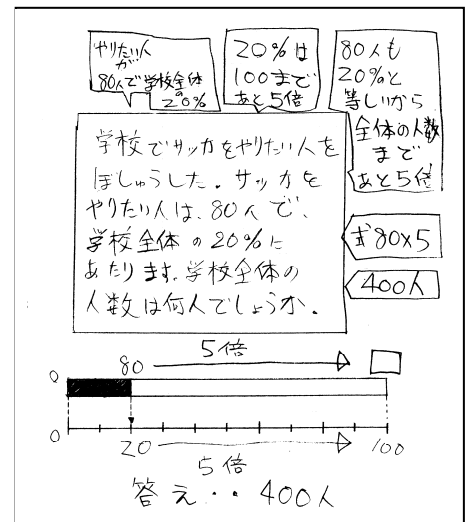 やりたい人
が
80人で学校全体
の
20%
20%は
100まで
あと5倍
80人も
20%と
等しいから
全体の人数
まで
あと5倍
学校でサッカをやりたい人を
ぼしゅうした。サッカを
やりたい人は、80人で、
学校全体の20%に
あたります。学校全体の
人数は何人でしょうか。
式80×5
400人
5倍
80
0
0
20
100
5倍
答え‥400人